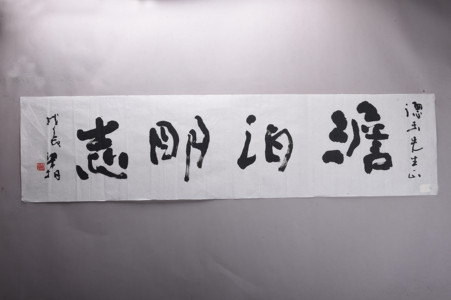 澹泊明志
先生正
戊辰